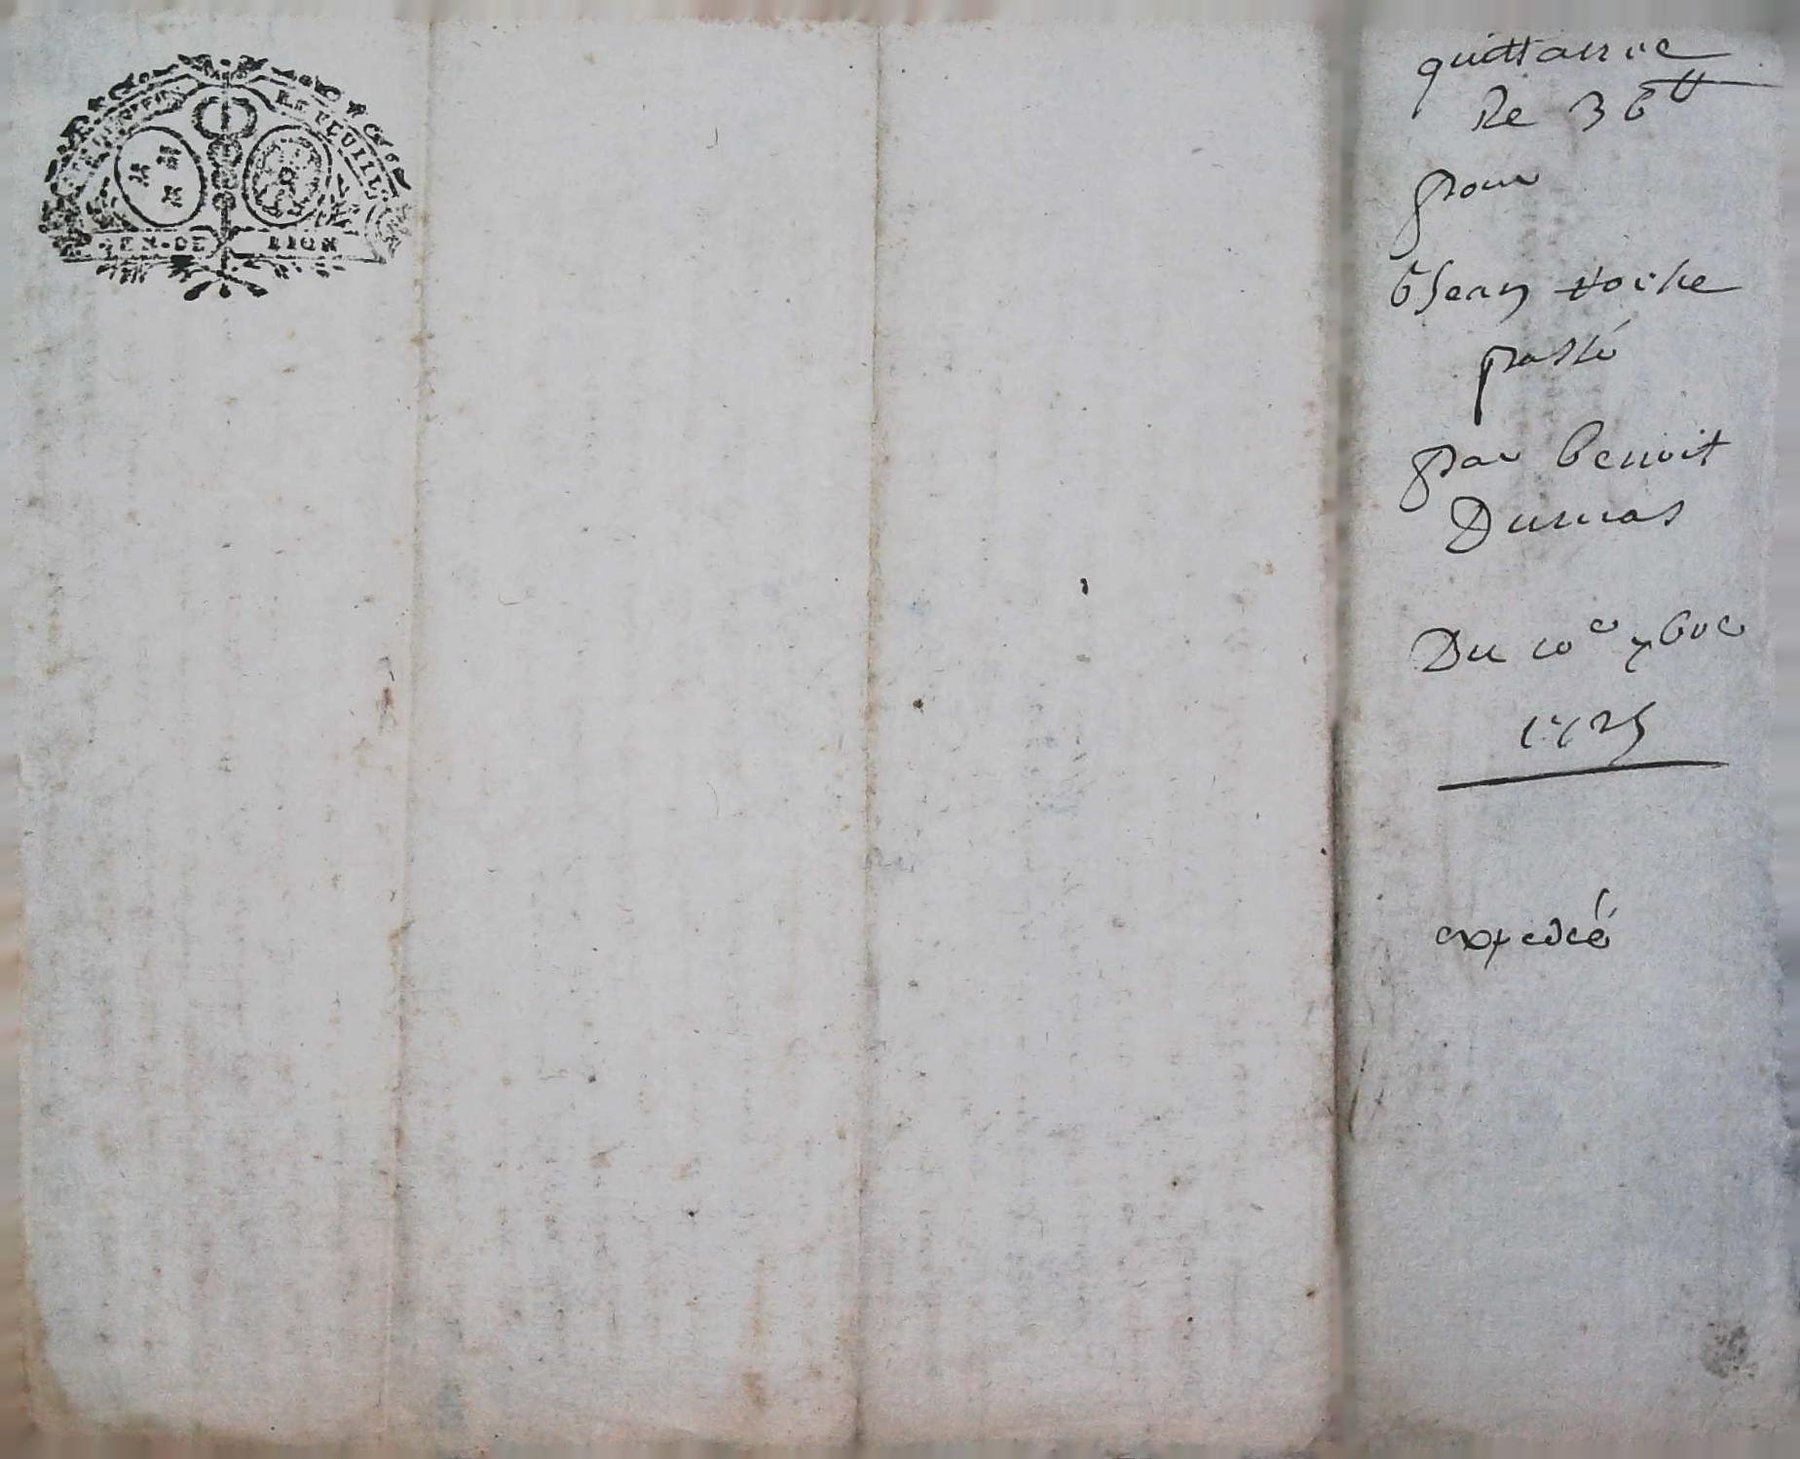 GEN · DE LION
quittance
De 36 ₶
pour
Jean roche
passé
par benoit
Dumas
Du 10e 7bre
1725
expedié